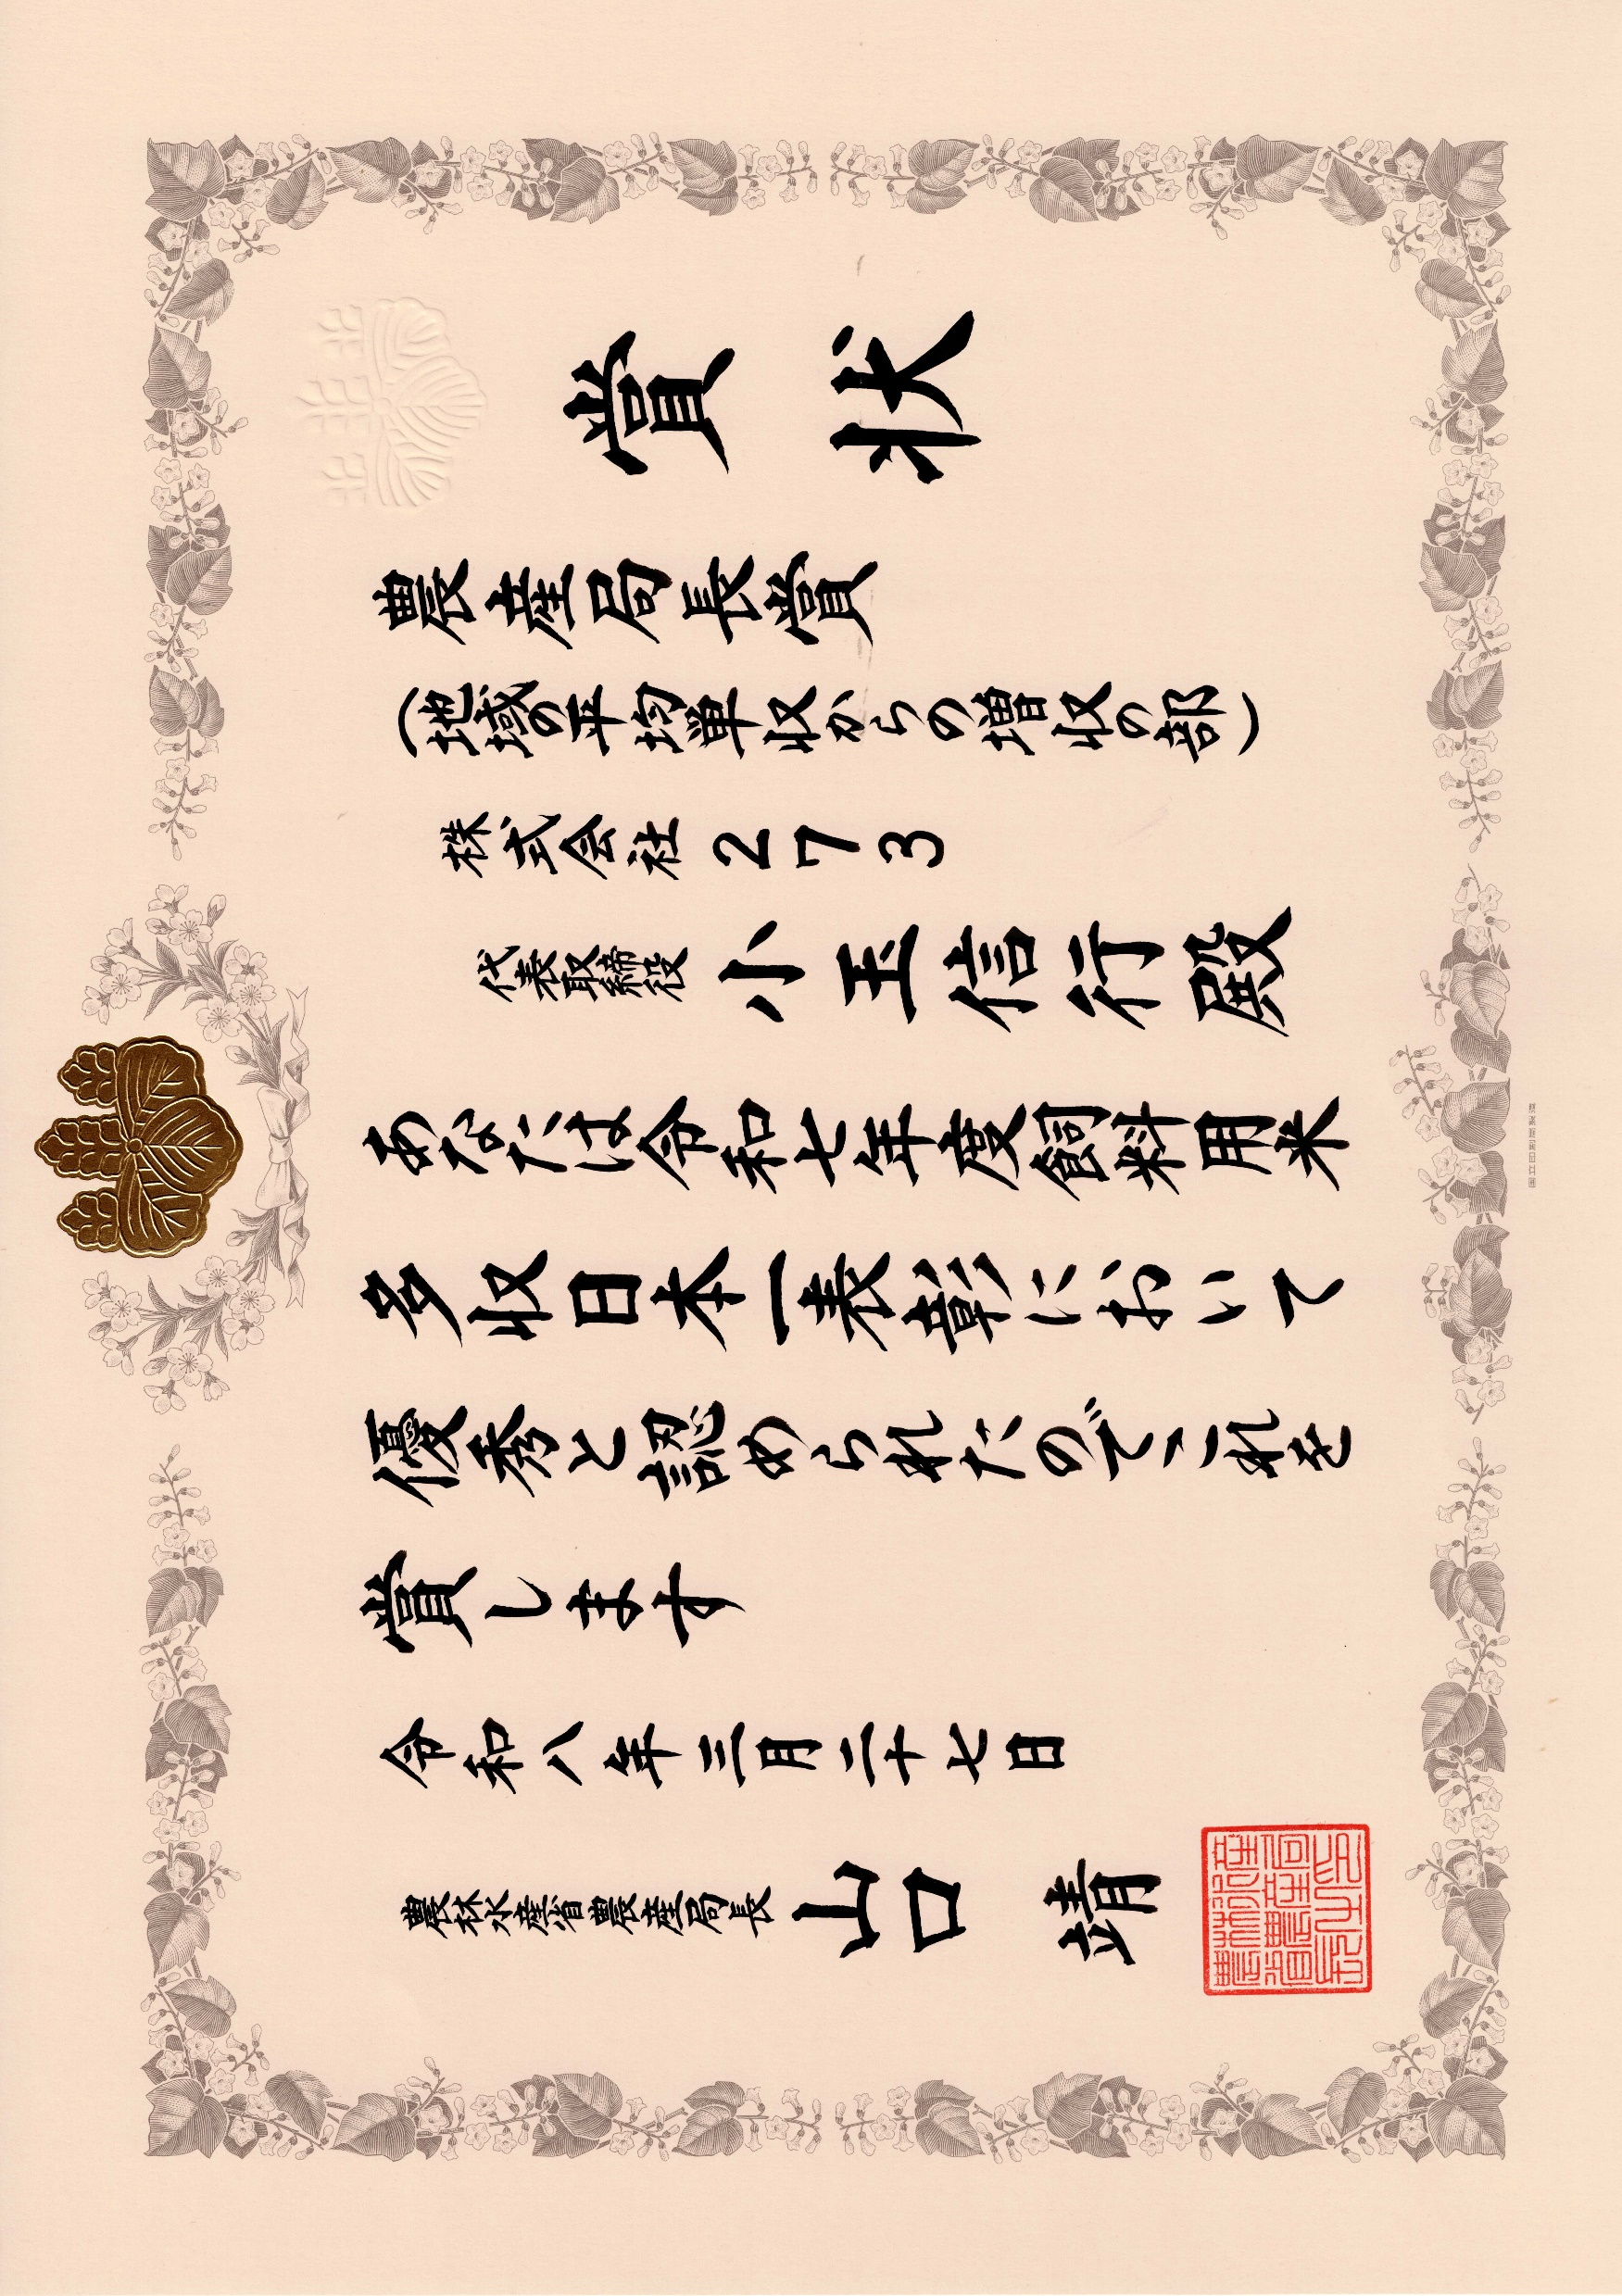 賞状
農産局長賞
（地域の平均単収からの増収の部）
株式会社２７３
代表取締役 小玉信行殿
あなたは令和七年度飼料用米
多収日本一表彰において
優秀と認められたのでこれを
賞します
令和八年三月二十七日
農林水産省農産局長 山口 靖